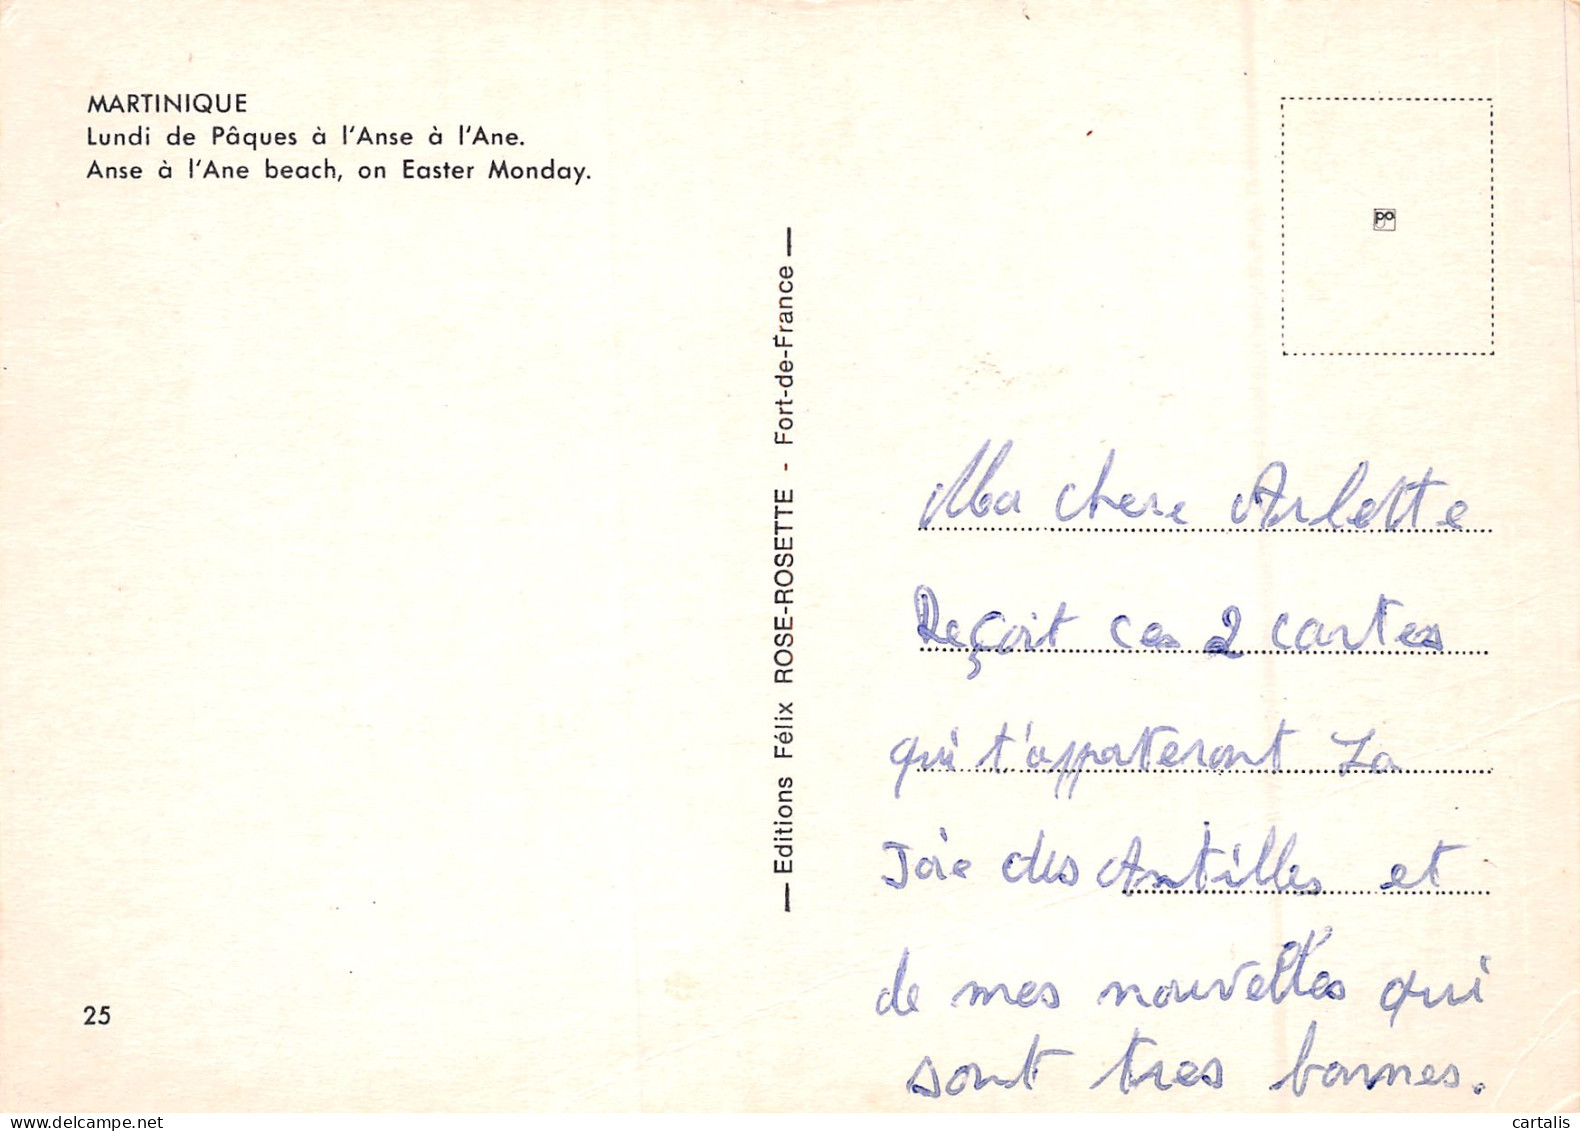 MARTINIQUE
Lundi de Pâques à l'Anse à l'Ane.
Anse à l'Ane beach, on Easter Monday.
25
Editions Félix ROSE-ROSETTE - Fort-de-France
po
Ma chere Arlette
Reçoit ces 2 cartes
qui t'apporteront La
Joie des Antilles et
de mes nouvelles qui
sont tres bonnes.
cartalis